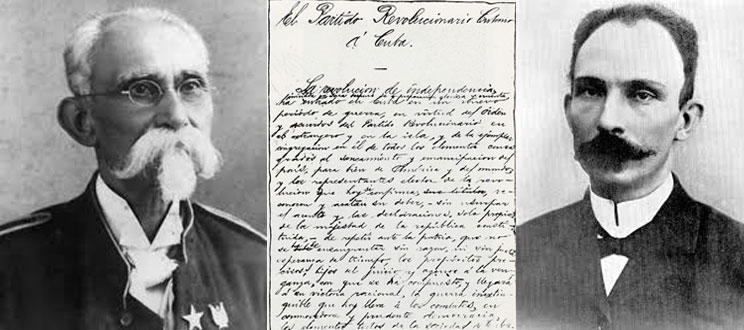 El Partido Revolucionario Cubano
á Cuba.
La revolucion de independencia,
iniciada en Yara despues de preparacion gloriosa y cruenta,
ha entrado en Cuba en un nuevo
periodo de guerra, en virtud del orden
y acuerdos del Partido Revolucionario en
el extranjero y en la isla, y de la ejemplar
congregacion en él de todos los elementos consa
grados al saneamiento y emancipacion del
pais, para bien de América y del mundo;
y los representantes electos de la revo
lucion que hoy se confirma, reco
nocen y acatan su deber, - sin usurpar
el acento y las declaraciones solo propias
de la majestad de la república consti
tuida, - de repetir ante la patria, que no
se ha de ensangrentar sin razon, ni sin justa
esperanza de triunfo, los propósitos pre
cisos, hijos del juicio y agenos á la ven
ganza, con que se ha compuesto, y llegará
á su victoria racional, la guerra inextin
guible que hoy lleva á los combates, en
conmovedora y prudente democracia,
los elementos todos de la sociedad de Cuba.